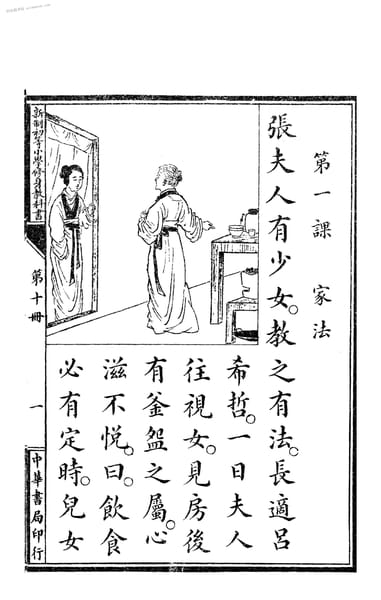 第一課　家法
張夫人有少女。教之有法。長適呂
希哲。一日夫人
往視女。見房後
有釜盌之屬。心
滋不悅。曰。飲食
必有定時。兒女
新制初等小學修身教科書
第十冊
一
中華書局印行